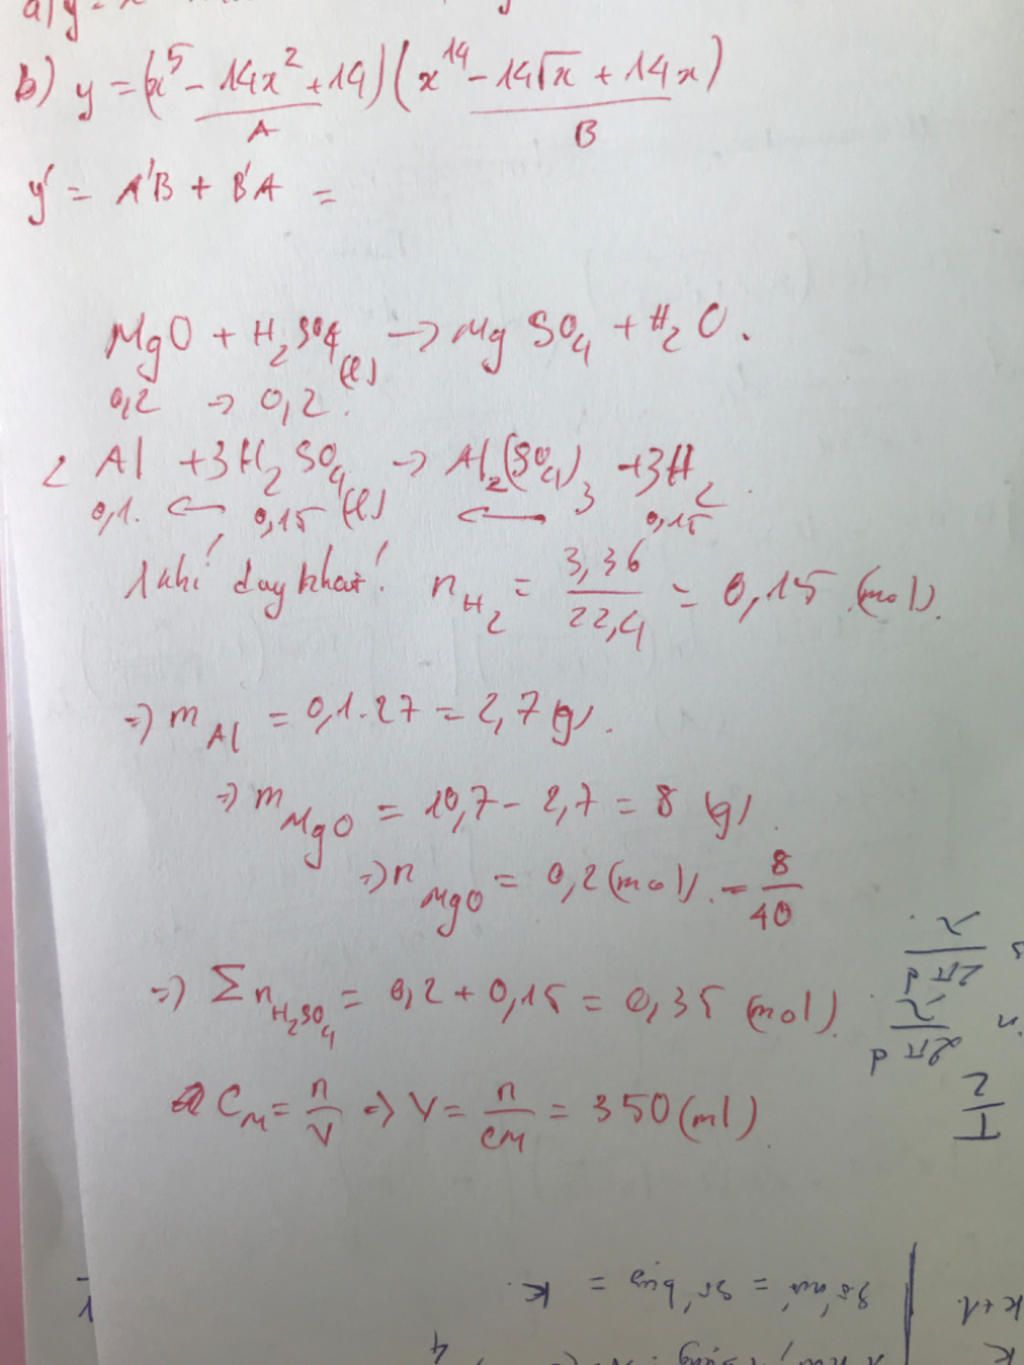 a) y =
b) y = (x⁵ - 14x² + 14)(x¹⁴ - 14√x + 14x)
A B
y' = A'B + B'A =
MgO + H₂SO₄(l) → MgSO₄ + H₂O.
0,2 → 0,2.
2Al + 3H₂SO₄(l) → Al₂(SO₄)₃ + 3H₂.
0,1. ← 0,15 ← 0,15
1 khí duy nhất! n H₂ = 3,36/22,4 = 0,15 (mol).
=) m Al = 0,1.27 = 2,7 (g).
=) m MgO = 10,7 - 2,7 = 8 (g).
=) n MgO = 0,2 (mol). = 8/40
=) Σn H₂SO₄ = 0,2 + 0,15 = 0,35 (mol).
C M = n/V =) V = n/CM = 350 (ml).
2πd/λ
2πd/λ
I/2
số bụng = k.
k+1.
k
4